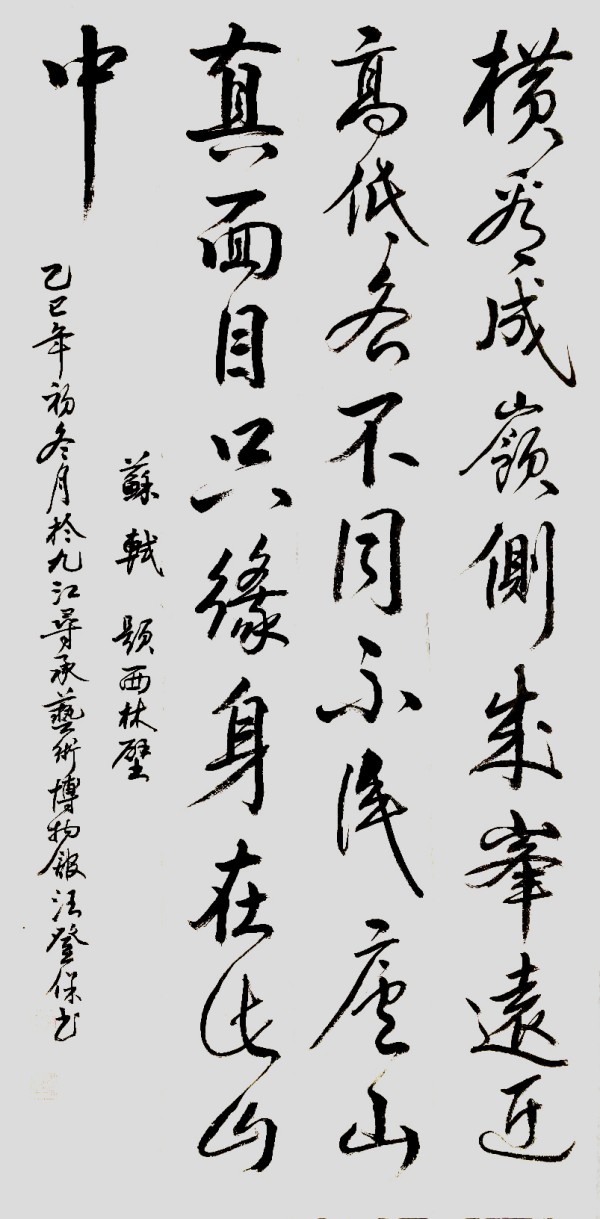 横看成嶺側成峯遠近
高低各不同不識廬山
真面目只緣身在此山
中
蘇軾 題西林壁
乙巳年初冬月於九江尋承藝術博物館汪登保书